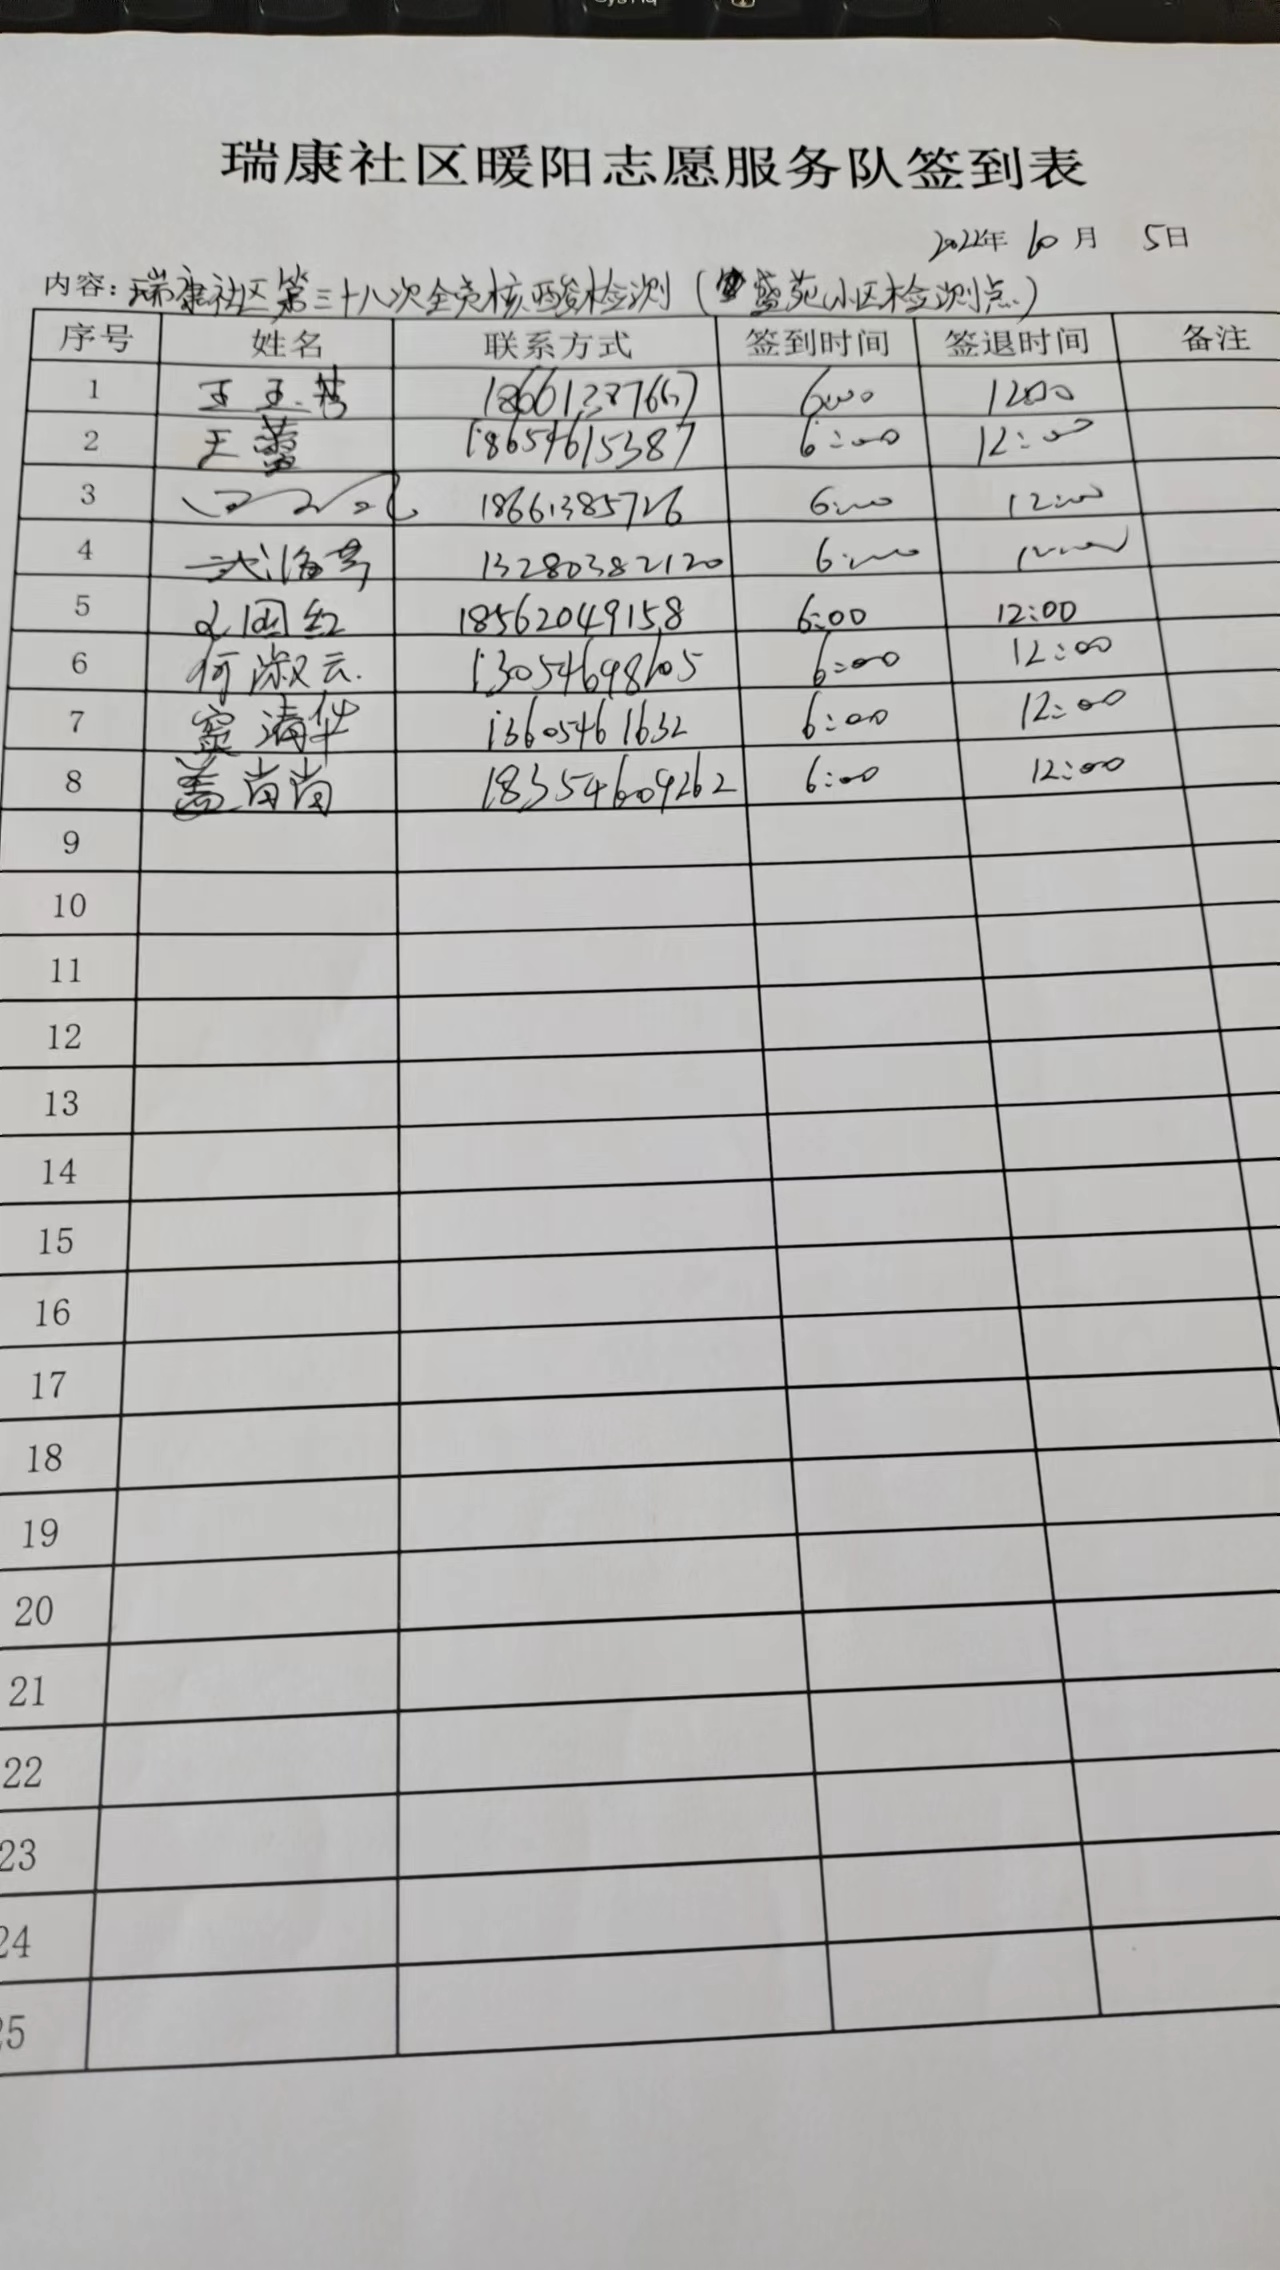 瑞康社区暖阳志愿服务队签到表
2022年 10月 5日
内容：瑞康社区第三十八次全员核酸检测（盛苑小区检测点）
序号 姓名 联系方式 签到时间 签退时间 备注
1 18661387667 6:00 1200
2 王蕾 18654615387 6:00 12:00
3 18661385726 6:00 12:00
4 13280382120 6:00 12:00
5 国红 18562049158 6:00 12:00
6 何淑云 13054698605 6:00 12:00
7 窦清华 13605461632 6:00 12:00
8 盖尚尚 18354609262 6:00 12:00
9
10
11
12
13
14
15
16
17
18
19
20
21
22
23
24
25